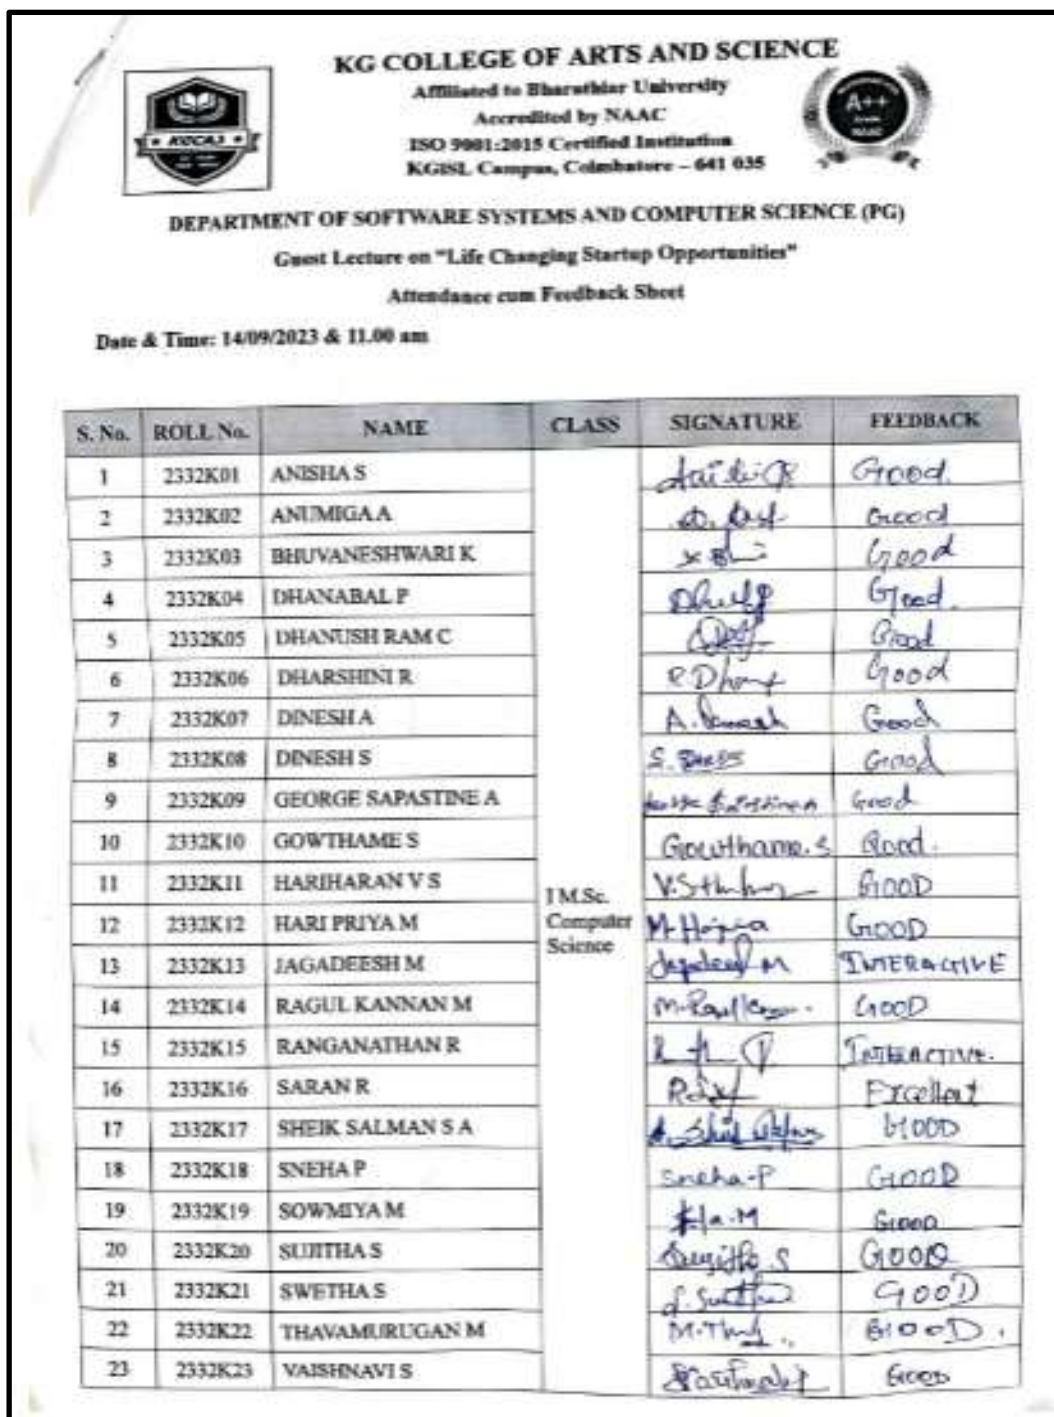 KG COLLEGE OF ARTS AND SCIENCE
Affiliated to Bharathiar University
Accredited by NAAC
ISO 9001:2015 Certified Institution
KGISL Campus, Coimbatore – 641 035
KGCAS
A++
NAAC
DEPARTMENT OF SOFTWARE SYSTEMS AND COMPUTER SCIENCE (PG)
Guest Lecture on "Life Changing Startup Opportunities"
Attendance cum Feedback Sheet
Date & Time: 14/09/2023 & 11.00 am
S. No. ROLL No. NAME CLASS SIGNATURE FEEDBACK
1 2332K01 ANISHA S Good.
2 2332K02 ANUMIGA A Good
3 2332K03 BHUVANESHWARI K Good
4 2332K04 DHANABAL P Good.
5 2332K05 DHANUSH RAM C Good
6 2332K06 DHARSHINI R Good
7 2332K07 DINESH A Good
8 2332K08 DINESH S Good
9 2332K09 GEORGE SAPASTINE A Good
10 2332K10 GOWTHAME S Gowthame.S Good.
11 2332K11 HARIHARAN V S GOOD
I M.Sc.
Computer
Science
12 2332K12 HARI PRIYA M GOOD
13 2332K13 JAGADEESH M Jagadeesh M INTERACTIVE
14 2332K14 RAGUL KANNAN M GOOD
15 2332K15 RANGANATHAN R INTERACTIVE.
16 2332K16 SARAN R Excellent
17 2332K17 SHEIK SALMAN S A GOOD
18 2332K18 SNEHA P Sneha-P GOOD
19 2332K19 SOWMIYA M GOOD
20 2332K20 SUJITHA S Sujitha.S GOOD
21 2332K21 SWETHA S GOOD
22 2332K22 THAVAMURUGAN M GOOD.
23 2332K23 VAISHNAVI S GOOD